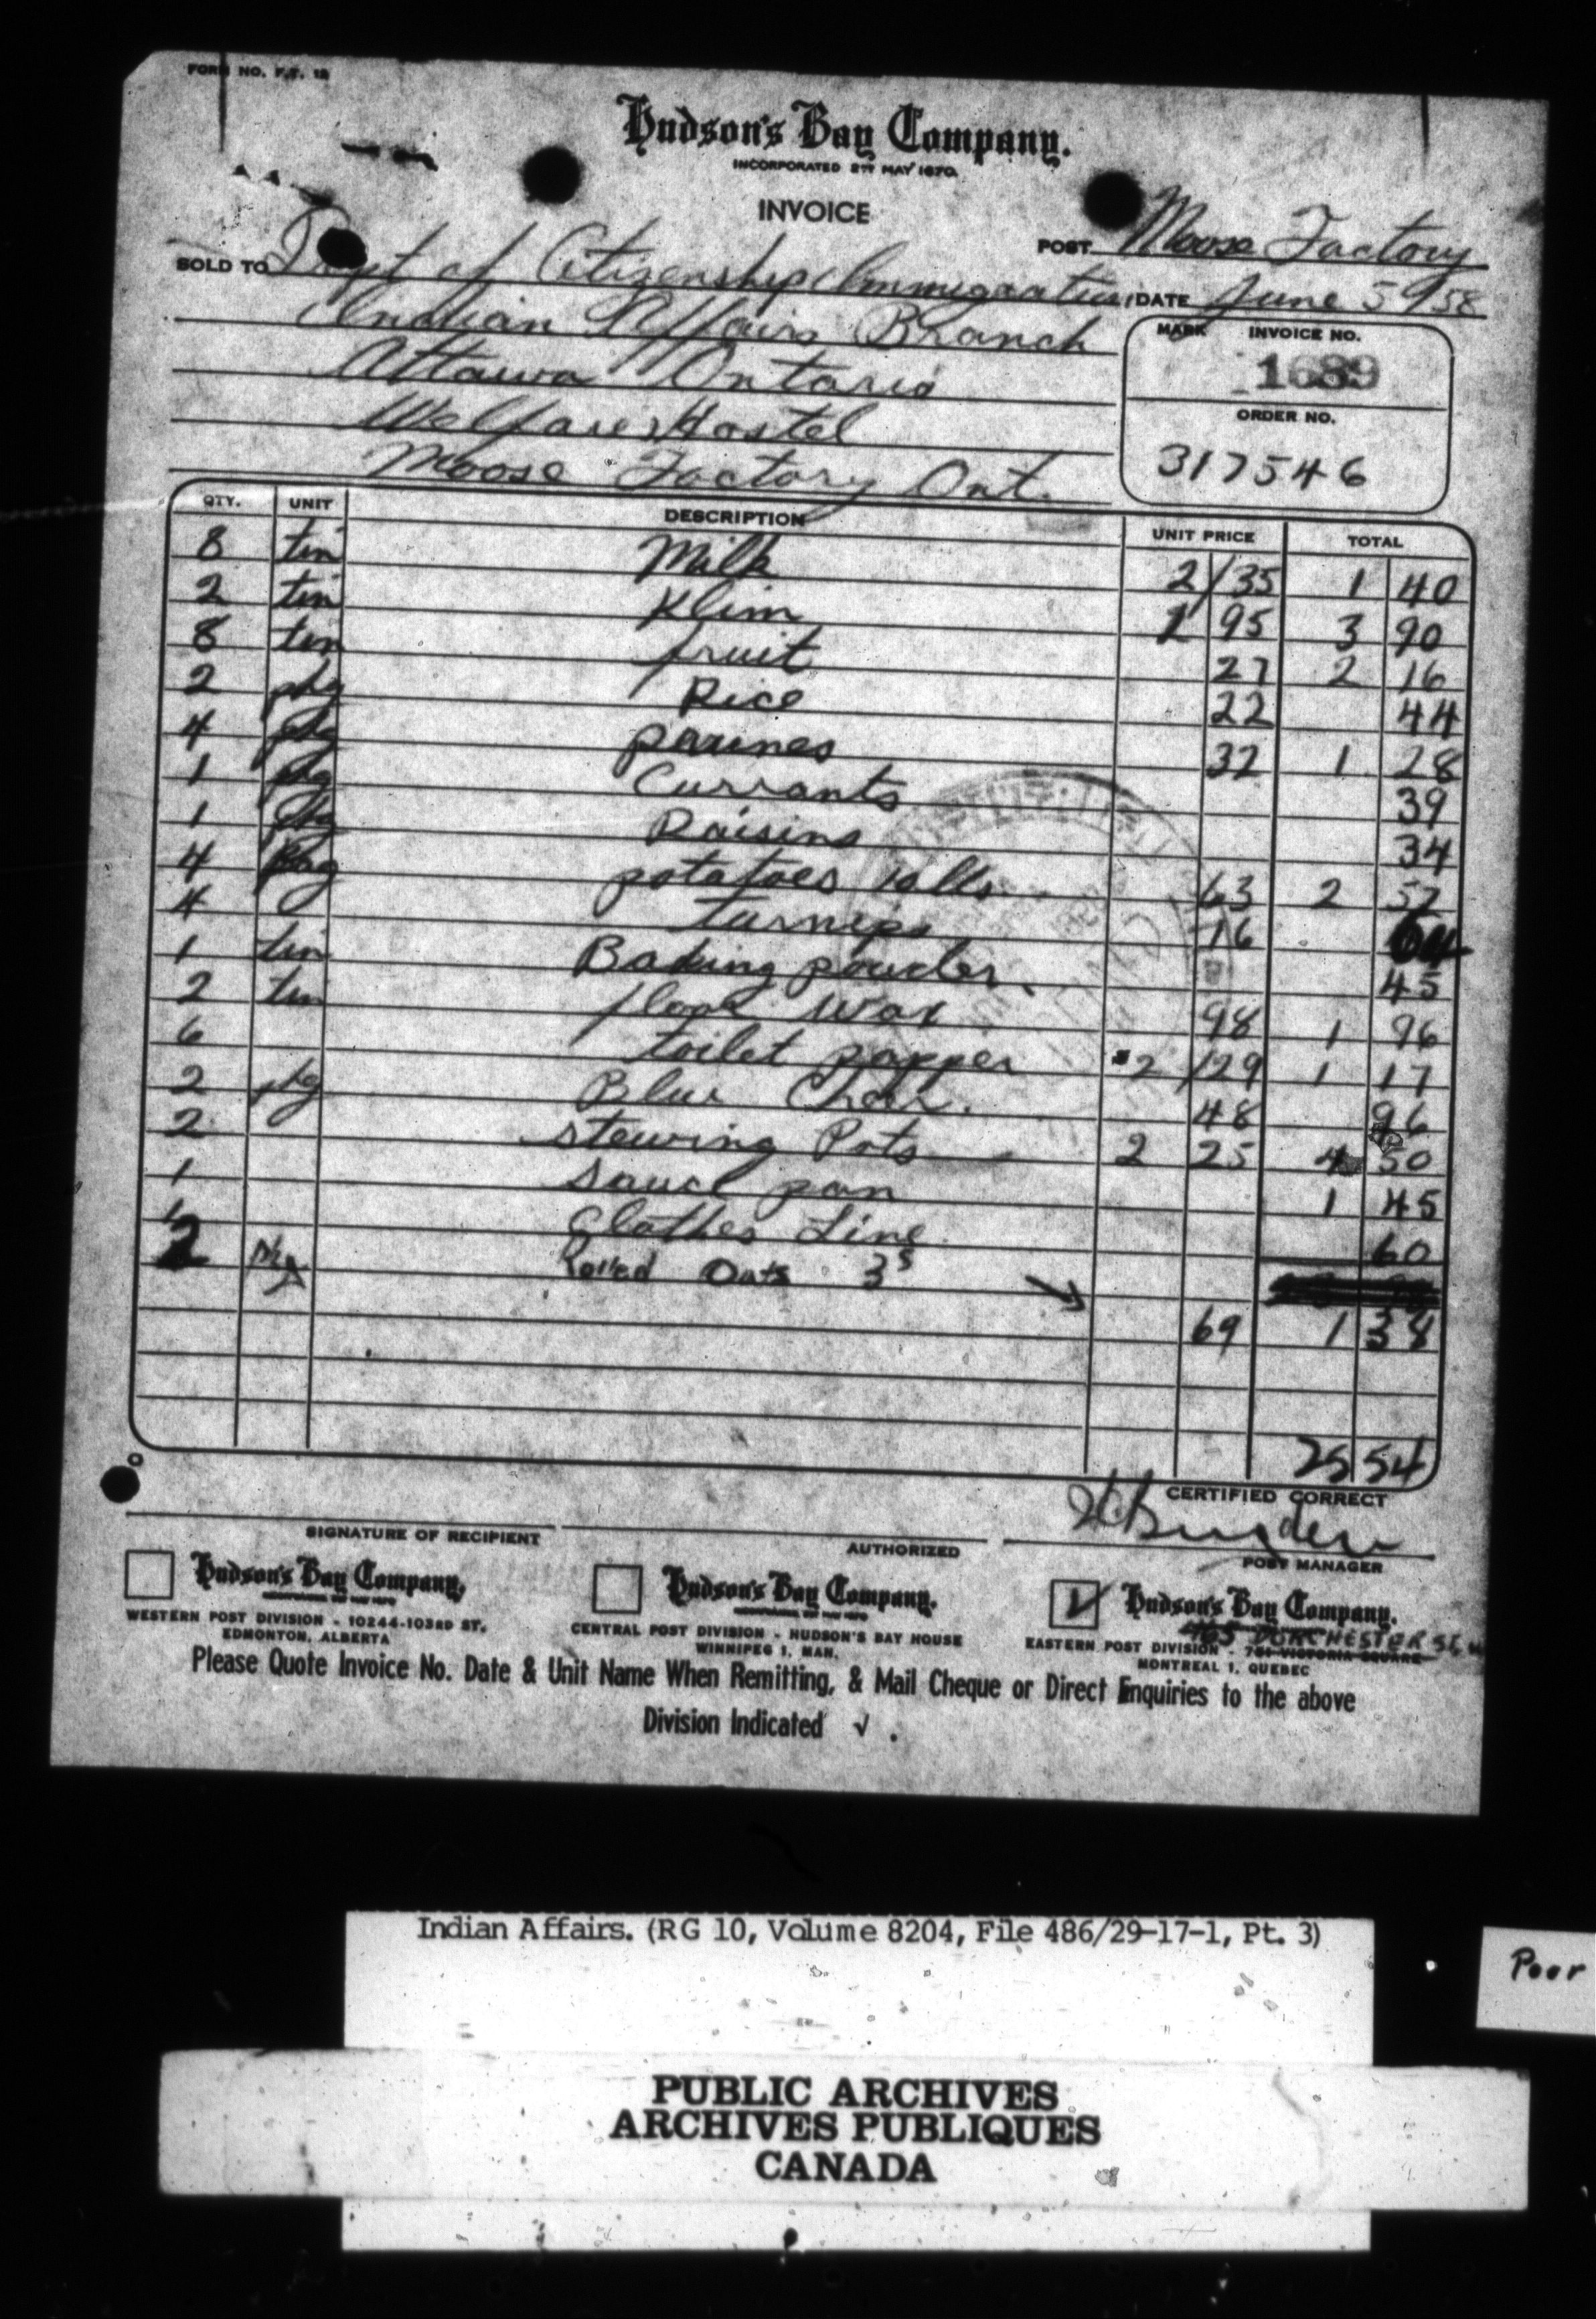 FORM NO. F.T. 12
Hudson's Bay Company.
INCORPORATED 2ND MAY 1670.
INVOICE
POST Moose Factory
SOLD TO Dept of Citizenship Immigration DATE June 5 1958
Indian Affairs Branch
Attawa Ontario
Welfare Hostel
Moose Factory Ont.
MARK INVOICE NO.
1689
ORDER NO.
317546
QTY. UNIT DESCRIPTION UNIT PRICE TOTAL
8 tin Milk 2/35 1 40
2 tin Klim 1 95 3 90
8 tin fruit 27 2 16
2 pkg Rice 22 44
4 pkg prunes 32 1 28
1 pkg Currants 39
1 pkg Raisins 34
4 Bag potatoes 10lbs 63 2 52
4 turnips 16 64
1 tin Baking powder 45
2 tin floor wax 98 1 96
6 toilet papper 2/29 1 17
2 pkg Blue Cheer. 48 96
2 stewing Pots 2 25 4 50
1 sauce pan 1 45
1 Clothes Line 60
2 pkg Rolled Oats 3s
69 1 38
25 54
CERTIFIED CORRECT
SIGNATURE OF RECIPIENT AUTHORIZED POST MANAGER
Hudson's Bay Company. Hudson's Bay Company. Hudson's Bay Company.
WESTERN POST DIVISION - 10244-103RD ST. EDMONTON, ALBERTA
CENTRAL POST DIVISION - HUDSON'S BAY HOUSE WINNIPEG 1, MAN.
465 DORCHESTER ST. W
EASTERN POST DIVISION - 751 VICTORIA SQUARE MONTREAL 1, QUEBEC
Please Quote Invoice No. Date & Unit Name When Remitting, & Mail Cheque or Direct Enquiries to the above
Division Indicated √ .
Indian Affairs. (RG 10, Volume 8204, File 486/29-17-1, Pt. 3)
Poor
PUBLIC ARCHIVES
ARCHIVES PUBLIQUES
CANADA